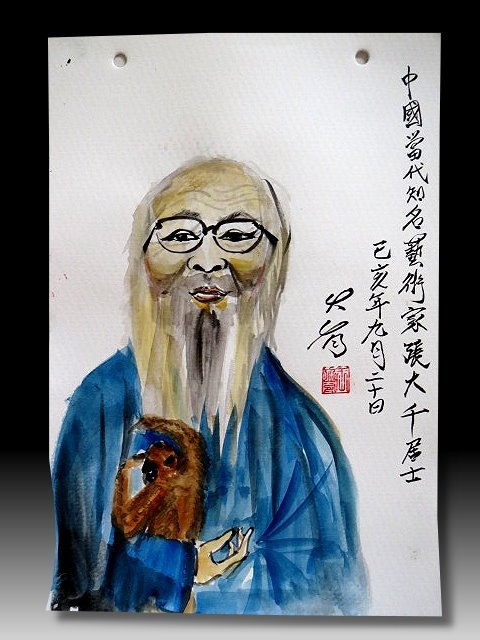 中國當代知名藝術家張大千居士
己亥年九月二十日